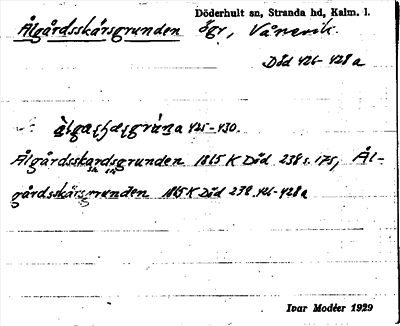 Döderhult sn, Stranda hd, Kalm. l.
Ålgårdsskärsgrunden ögr, Vånevik.
Död 426-428 a
425-430.
Ålgårdsskardsgrunden 1865 K Död 238 s. 175, Ål-
gårdsskärsgrunden 1865 K Död 238. 426-428 a
Ivar Modéer 1929